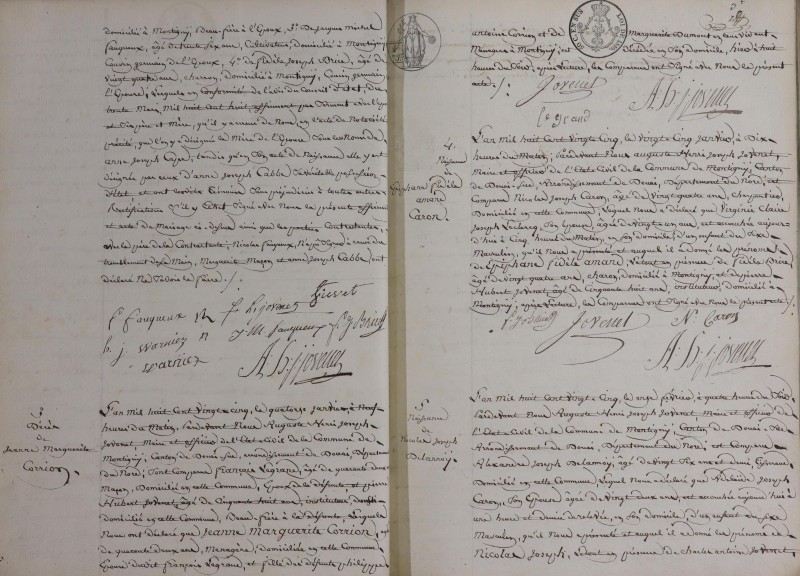 domicilié à Montigny, Beau-frère à l'Epoux, 3.° De Jacques Michel
Fauqueux, âgé de trente six ans, Cultivateur, domicilié à Montigny,
Cousin germain de l'Epoux, 4.° de fidèle Joseph Brée, âgé de
Vingt quatre ans, charron, domicilié à Montigny, Cousin germain,
L'Epouse; Lesquels en Conformité de l'avis du Conseil d'Etat, du
trente Mars, Mil huit Cent huit, affirment par Serment
et Mère, qu'il y a erreur de Nom en l'acte de Notoriété
précité, que l'on y a désigné la Mère de l'Epouse Sous les Noms de
anne Joseph tandis qu'en Son acte de Naissance elle y est
désignée par ceux d'anne Joseph Cabbe,
Rectification Signé avec Nous le présent
et acte de Mariage ainsi que les parties Contractantes,
le père de la Contractante; Nicolas Fauqueux, à cause du
tremblement de la Main, Marguerite et anne Joseph Cabbe, ont
déclaré Ne Savoir le faire ./.
f Fauqueux
f. L. jovenet
J M fauqueux
b. j Warnier
Warnier
A. h. j. jovenet
5
Décès
de
Jeanne Marguerite
Corrion.
L'an mil huit Cent Vingt-Cinq, le quatorze janvier, à Neuf
heures du Matin, Pardevant Nous Auguste Henri Joseph
Jovenet, Maire et officier de l'Etat-Civil de la Commune de
Montigny, Canton de Douai-Sud, arrondissement de Douai, Département
du Nord; Sont Comparus François Legrand, âgé de quarante deux
Domicilié en cette Commune, Epoux de la Défunte, et pierre
Hubert Jovenet, âgé de Cinquante huit ans, instituteur,
domicilié en cette Commune, Beau-frère à la Défunte, Lesquels
Nous ont déclaré que Jeanne Marguerite Corrion,
de quarante deux ans, Ménagère, domiciliée en cette Commune
Epouse dudit François Legrand, et fille des défunts philippe
antoine Corrion et de Marguerite Dumont en leur vivant
Ménagers à Montigny, est décédée en Son domicile, hier à huit
heures du Soir, après lecture, les Comparans ont Signé avec Nous le présent
acte ./.
Jovenet
le grand
A. h. j jovenet
4.
Naissance
de
Epiphane fidèle
amare
Caron.
L'an mil huit Cent Vingt-Cinq, le vingt-Cinq janvier, à Dix
heures du Matin, Pardevant Nous auguste Henri Joseph Jovenet,
Maire et officier de l'Etat Civil de la Commune de Montigny, Canton
de Douai-Sud, Arrondissement de Douai, Département du Nord, est
Comparu Nicolas Joseph Caron, âgé de Vingt quatre ans, charpentier,
Domicilié en cette Commune, Lequel Nous a déclaré que Virginie Claire
Joseph Leclercq, Son Epouse, âgée de Vingt un ans, est accouchée aujour
d'hui à Cinq heures du Matin, en Son domicile, d'un enfant du Sexe
Masculin, qu'il Nous a présenté et auquel il a donné les prénoms
de Epiphane fidèle amare, Ledout en présence de fidèle Brée,
âgé de vingt quatre ans, charon, domicilié à Montigny, et de pierre
Hubert Jovenet, âgé de Cinquante huit ans, instituteur, domicilié à
Montigny, après Lecture, les Comparans ont Signé avec Nous le présent acte ./.
Jovenet
N. Caron
A. h. j. jovenet
5
Naissance
de
Nicolas Joseph
Delannoy
L'an mil huit Cent Vingt-Cinq, le onze février, à quatre heures du Soir,
Pardevant Nous Auguste Henri Joseph Jovenet, Maire et officier de
L'Etat Civil de la Commune de Montigny, Canton de Douai-Sud
Arrondissement de Douai, Département du Nord, est Comparu
Alexandre Joseph Delannoy, âgé de Vingt Six ans et demi,
Domicilié en cette Commune, Lequel Nous a déclaré que Adelaïde Joseph
Caron, Son Epouse, âgée de Vingt-deux ans, est accouchée aujour hui à
une heure et demie de relevée, en Son domicile, d'un enfant du Sexe
Masculin, qu'il Nous a présenté et auquel il a donné les prénoms de
Nicolas Joseph, Ledout en présence de charles antoine Jovenet,